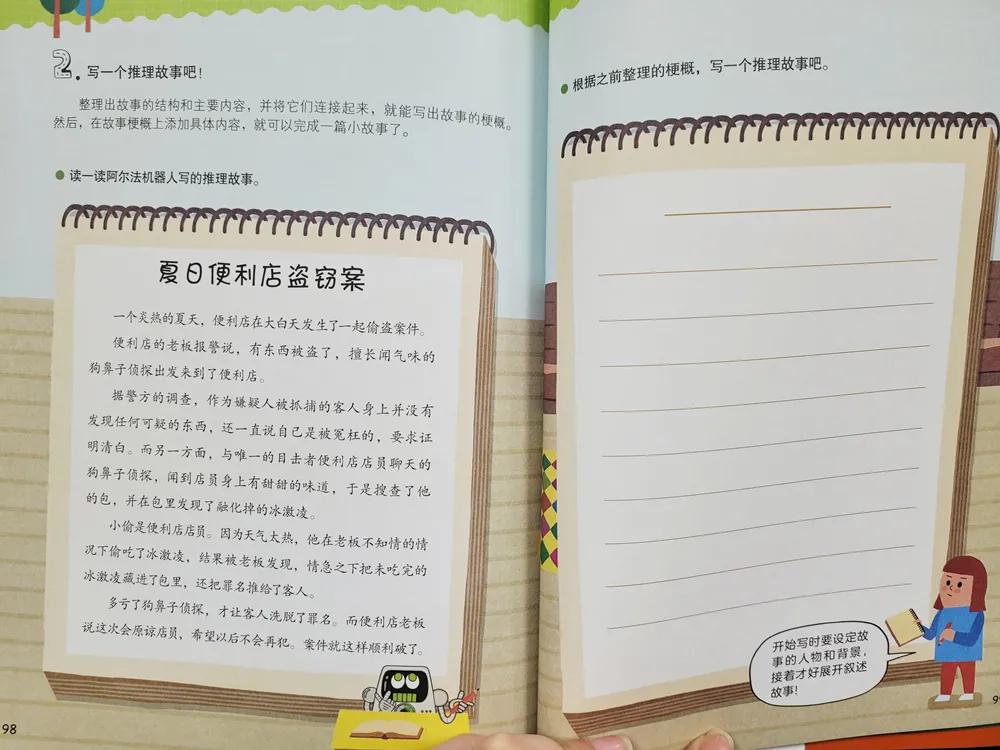 2. 写一个推理故事吧！
整理出故事的结构和主要内容，并将它们连接起来，就能写出故事的梗概。
然后，在故事梗概上添加具体内容，就可以完成一篇小故事了。
● 读一读阿尔法机器人写的推理故事。
夏日便利店盗窃案
一个炎热的夏天，便利店在大白天发生了一起偷盗案件。
便利店的老板报警说，有东西被盗了，擅长闻气味的
狗鼻子侦探出发来到了便利店。
据警方的调查，作为嫌疑人被抓捕的客人身上并没有
发现任何可疑的东西，还一直说自己是被冤枉的，要求证
明清白。而另一方面，与唯一的目击者便利店店员聊天的
狗鼻子侦探，闻到店员身上有甜甜的味道，于是搜查了他
的包，并在包里发现了融化掉的冰激凌。
小偷是便利店店员。因为天气太热，他在老板不知情的情
况下偷吃了冰激凌，结果被老板发现，情急之下把未吃完的
冰激凌藏进了包里，还把罪名推给了客人。
多亏了狗鼻子侦探，才让客人洗脱了罪名。而便利店老板
说这次会原谅店员，希望以后不会再犯。案件就这样顺利破了。
98
● 根据之前整理的梗概，写一个推理故事吧。
开始写时要设定故
事的人物和背景，
接着才好展开叙述
故事！